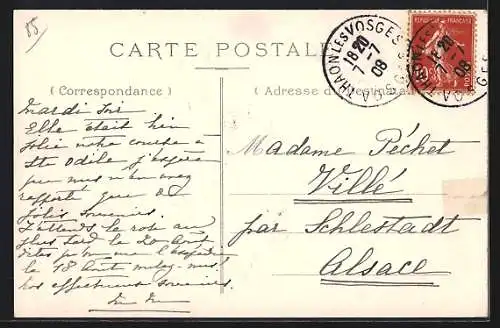 85
CARTE POSTALE
(Correspondance)
(Adresse du destinataire)
THAON LES VOSGES
18 20
7 - 7
08
REPUBLIQUE FRANÇAISE
Mardi soir
Elle était bien
jolie notre course à
Ste Odile j'espère
que vous n'en avez
rapporté que de
jolis souvenirs.
J'attends la robe au
plus tard le 20 Août
le 18 Août
affectueux souvenirs
Madame Péchet
Villé
par Schlestadt
Alsace